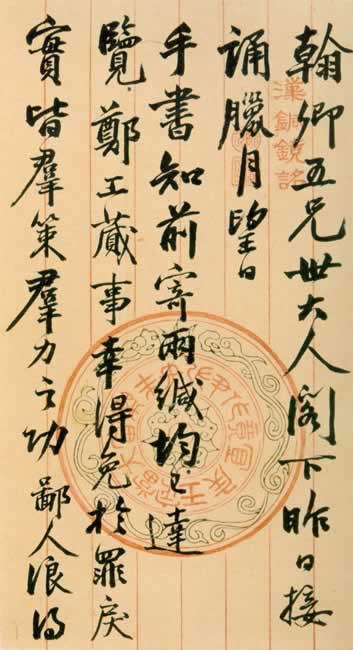 翰卿五兄世大人閣下昨日接
誦臘月望日
手書知前寄兩緘均已達
覽鄭工蕆事幸得免於罪戾
實皆羣策羣力之功鄙人浪得
漢銅鏡詺